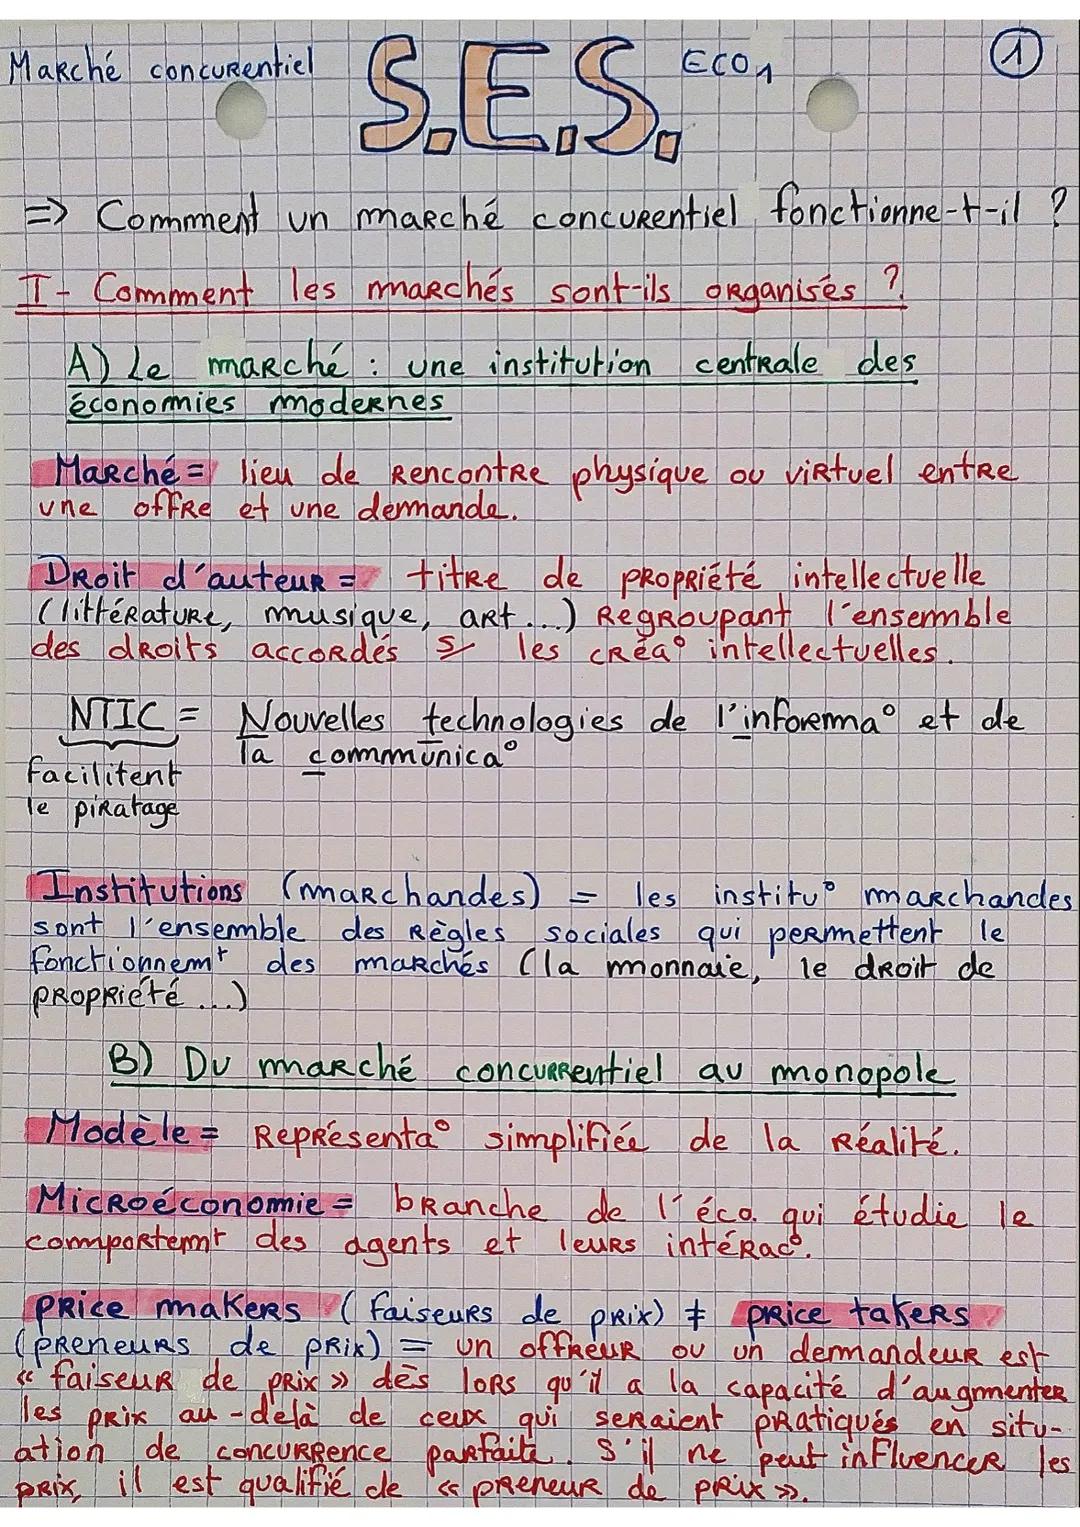 Marché concurentiel S.E.S. ECO1 1
=> Comment un marché concurentiel fonctionne-t-il ?
I - Comment les marchés sont-ils organisés ?
A) Le marché : une institution centrale des
économies modernes
Marché = lieu de rencontre physique ou virtuel entre
une offre et une demande.
Droit d'auteur = titre de propriété intellectuelle
(littérature, musique, art...) regroupant l'ensemble
des droits accordés s/ les créa° intellectuelles.
NTIC = Nouvelles technologies de l'informa° et de
la communica°
facilitent
le piratage
Institutions (marchandes) = les institu° marchandes
sont l'ensemble des règles sociales qui permettent le
fonctionnemt des marchés (la monnaie, le droit de
propriété...)
B) Du marché concurrentiel au monopole
Modèle = Représenta° simplifiée de la réalité.
Microéconomie = branche de l'éco. qui étudie le
comportemt des agents et leurs intérac°.
price makers (faiseurs de prix) ≠ price takers
(preneurs de prix) = un offreur ou un demandeur est
« faiseur de prix » dès lors qu'il a la capacité d'augmenter
les prix au-delà de ceux qui seraient pratiqués en situ-
ation de concurrence parfaite. S'il ne peut influencer les
prix, il est qualifié de « preneur de prix ».